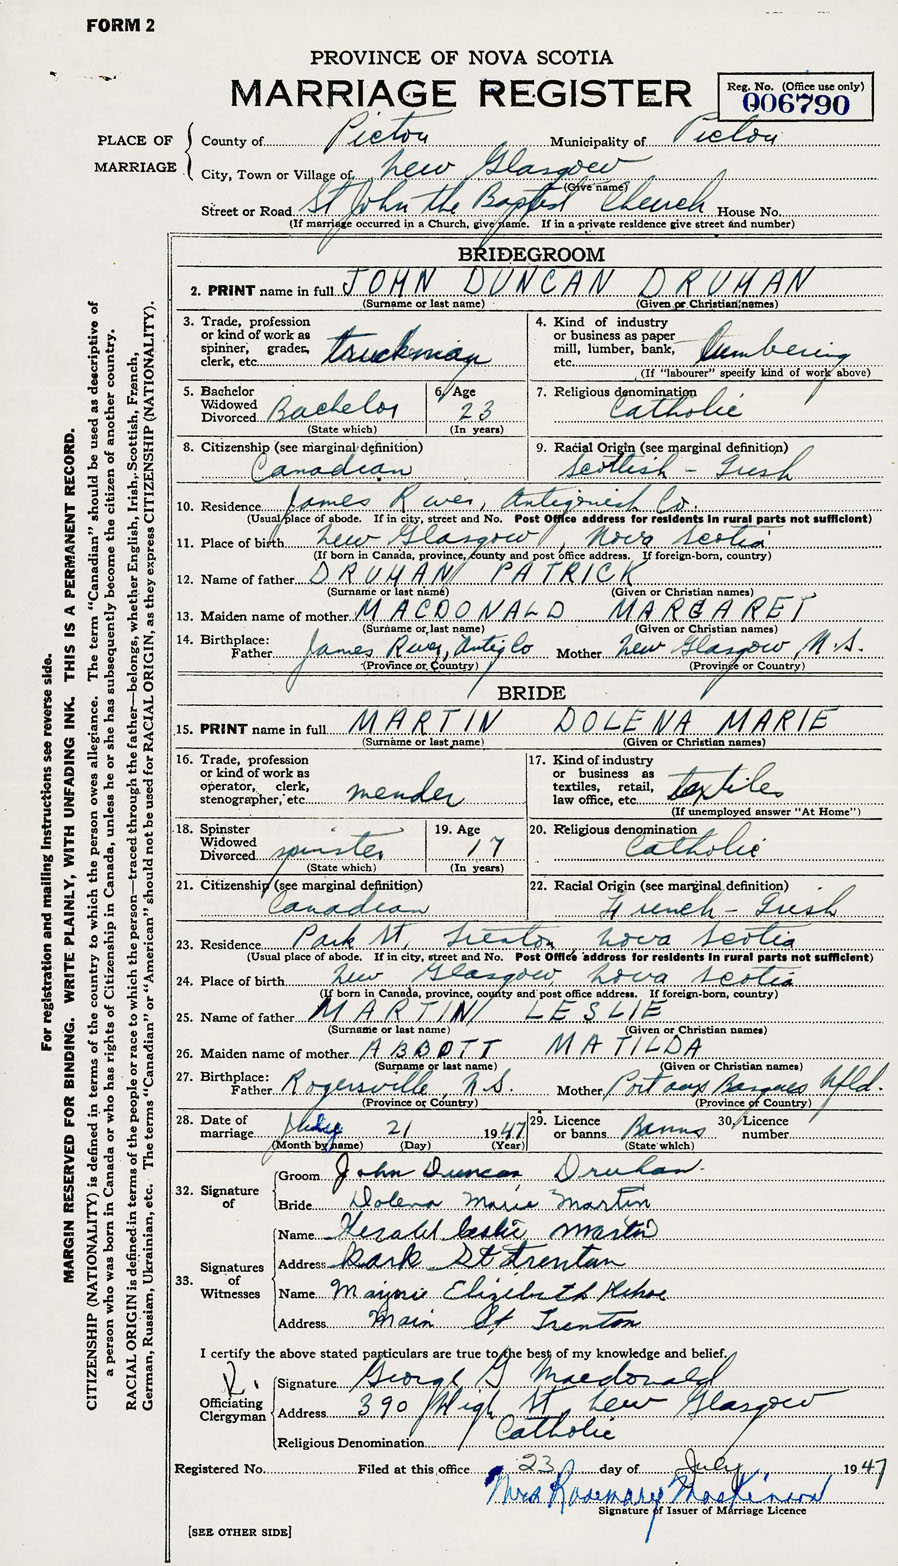 FORM 2
PROVINCE OF NOVA SCOTIA
MARRIAGE REGISTER
Reg. No. (Office use only)
006790
PLACE OF MARRIAGE
County of Pictou Municipality of Pictou
City, Town or Village of New Glasgow
(Give name)
Street or Road St John the Baptist Church House No.
(If marriage occurred in a Church, give name. If in a private residence give street and number)
BRIDEGROOM
2. PRINT name in full JOHN DUNCAN DRUHAN
(Surname or last name) (Given or Christian names)
3. Trade, profession or kind of work as spinner, grader, clerk, etc. truckman
4. Kind of industry or business as paper mill, lumber, bank, etc. Lumbering
(If "labourer" specify kind of work above)
5. Bachelor Widowed Divorced Bachelor
(State which)
6. Age 23
(In years)
7. Religious denomination Catholic
8. Citizenship (see marginal definition)
Canadian
9. Racial Origin (see marginal definition)
Scottish - Irish
10. Residence James River, Antigonish Co.
(Usual place of abode. If in city, street and No. Post Office address for residents in rural parts not sufficient)
11. Place of birth New Glasgow, Nova Scotia
(If born in Canada, province, county and post office address. If foreign-born, country)
12. Name of father DRUHAN PATRICK
(Surname or last name) (Given or Christian names)
13. Maiden name of mother MACDONALD MARGARET
(Surname or last name) (Given or Christian names)
14. Birthplace:
Father James River, Antig Co Mother New Glasgow, N.S.
(Province or Country) (Province or Country)
BRIDE
15. PRINT name in full MARTIN DOLENA MARIE
(Surname or last name) (Given or Christian names)
16. Trade, profession or kind of work as operator, clerk, stenographer, etc. mender
17. Kind of industry or business as textiles, retail, law office, etc. textiles
(If unemployed answer "At Home")
18. Spinster Widowed Divorced spinster
(State which)
19. Age 17
(In years)
20. Religious denomination Catholic
21. Citizenship (see marginal definition)
Canadian
22. Racial Origin (see marginal definition)
French - Irish
23. Residence Park St, Trenton, Nova Scotia
(Usual place of abode. If in city, street and No. Post Office address for residents in rural parts not sufficient)
24. Place of birth New Glasgow, Nova Scotia
(If born in Canada, province, county and post office address. If foreign-born, country)
25. Name of father MARTIN LESLIE
(Surname or last name) (Given or Christian names)
26. Maiden name of mother ABBOTT MATILDA
(Surname or last name) (Given or Christian names)
27. Birthplace:
Father Rogersville, N.S. Mother Port aux Basques Nfld.
(Province or Country) (Province or Country)
28. Date of marriage July 21 1947
(Month by name) (Day) (Year)
29. Licence or banns Banns
(State which)
30. Licence number
32. Signature of
Groom John Duncan Druhan
Bride Dolena Marie Martin
33. Signatures of Witnesses
Name Herald Leslie Martin
Address Park St Trenton
Name Marjorie Elizibeth Kehoe
Address Main St, Trenton
I certify the above stated particulars are true to the best of my knowledge and belief.
Officiating Clergyman
Signature George G Macdonald
Address 390 High St, New Glasgow
Religious Denomination Catholic
Registered No. Filed at this office 23 day of July 1947
Mrs Rosemary MacKinnon
Signature of Issuer of Marriage Licence
[SEE OTHER SIDE]
For registration and mailing instructions see reverse side.
MARGIN RESERVED FOR BINDING. WRITE PLAINLY, WITH UNFADING INK. THIS IS A PERMANENT RECORD.
CITIZENSHIP (NATIONALITY) is defined in terms of the country to which the person owes allegiance. The term "Canadian" should be used as descriptive of
a person who was born in Canada or who has rights of Citizenship in Canada, unless he or she has subsequently become the citizen of another country.
RACIAL ORIGIN is defined in terms of the people or race to which the person—traced through the father—belongs, whether English, Irish, Scottish, French,
German, Russian, Ukrainian, etc. The terms "Canadian" or "American" should not be used for RACIAL ORIGIN, as they express CITIZENSHIP (NATIONALITY).